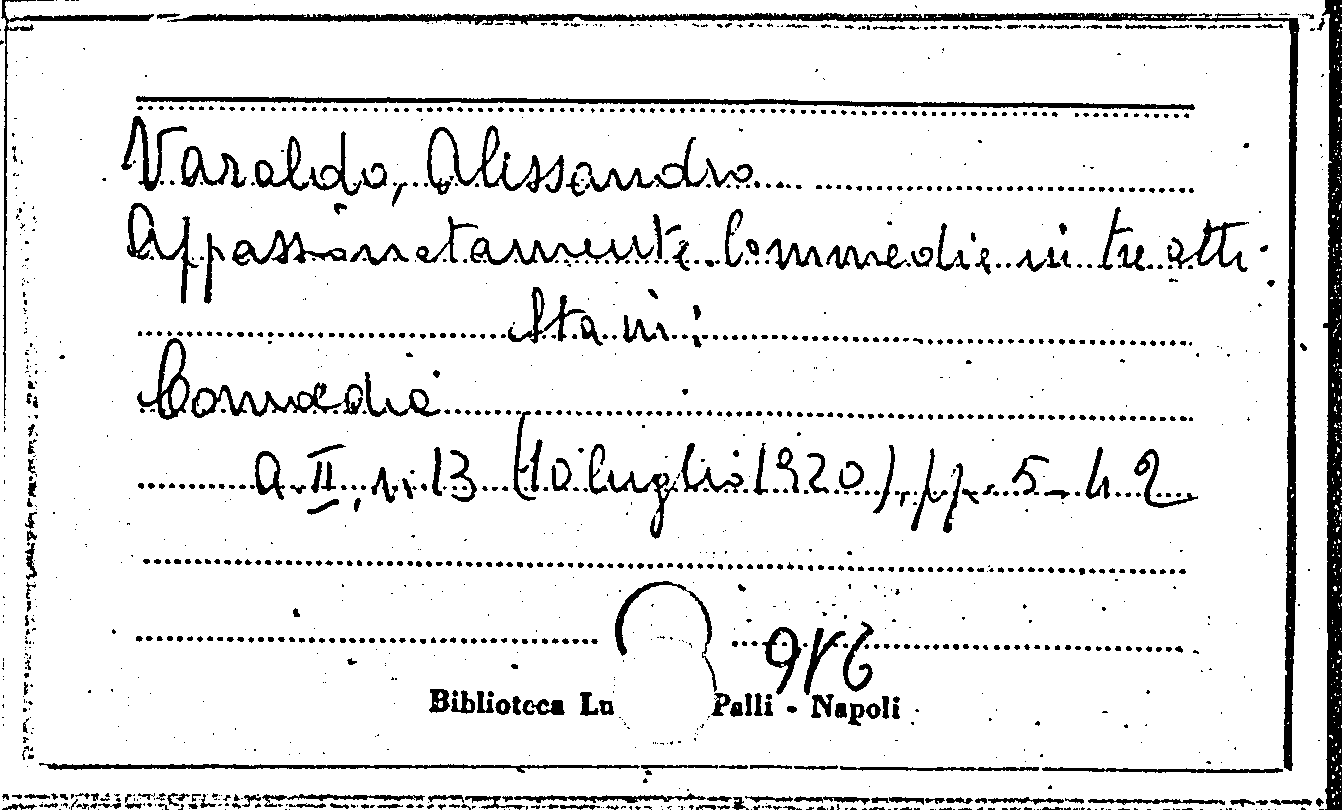 Varaldo, Alessandro
Appassionatamente. Commedia in tre atti.
Sta in:
Comoedia
a. II, n. 13 (10 luglio 1920), pp. 5-42
Biblioteca Lu Palli - Napoli